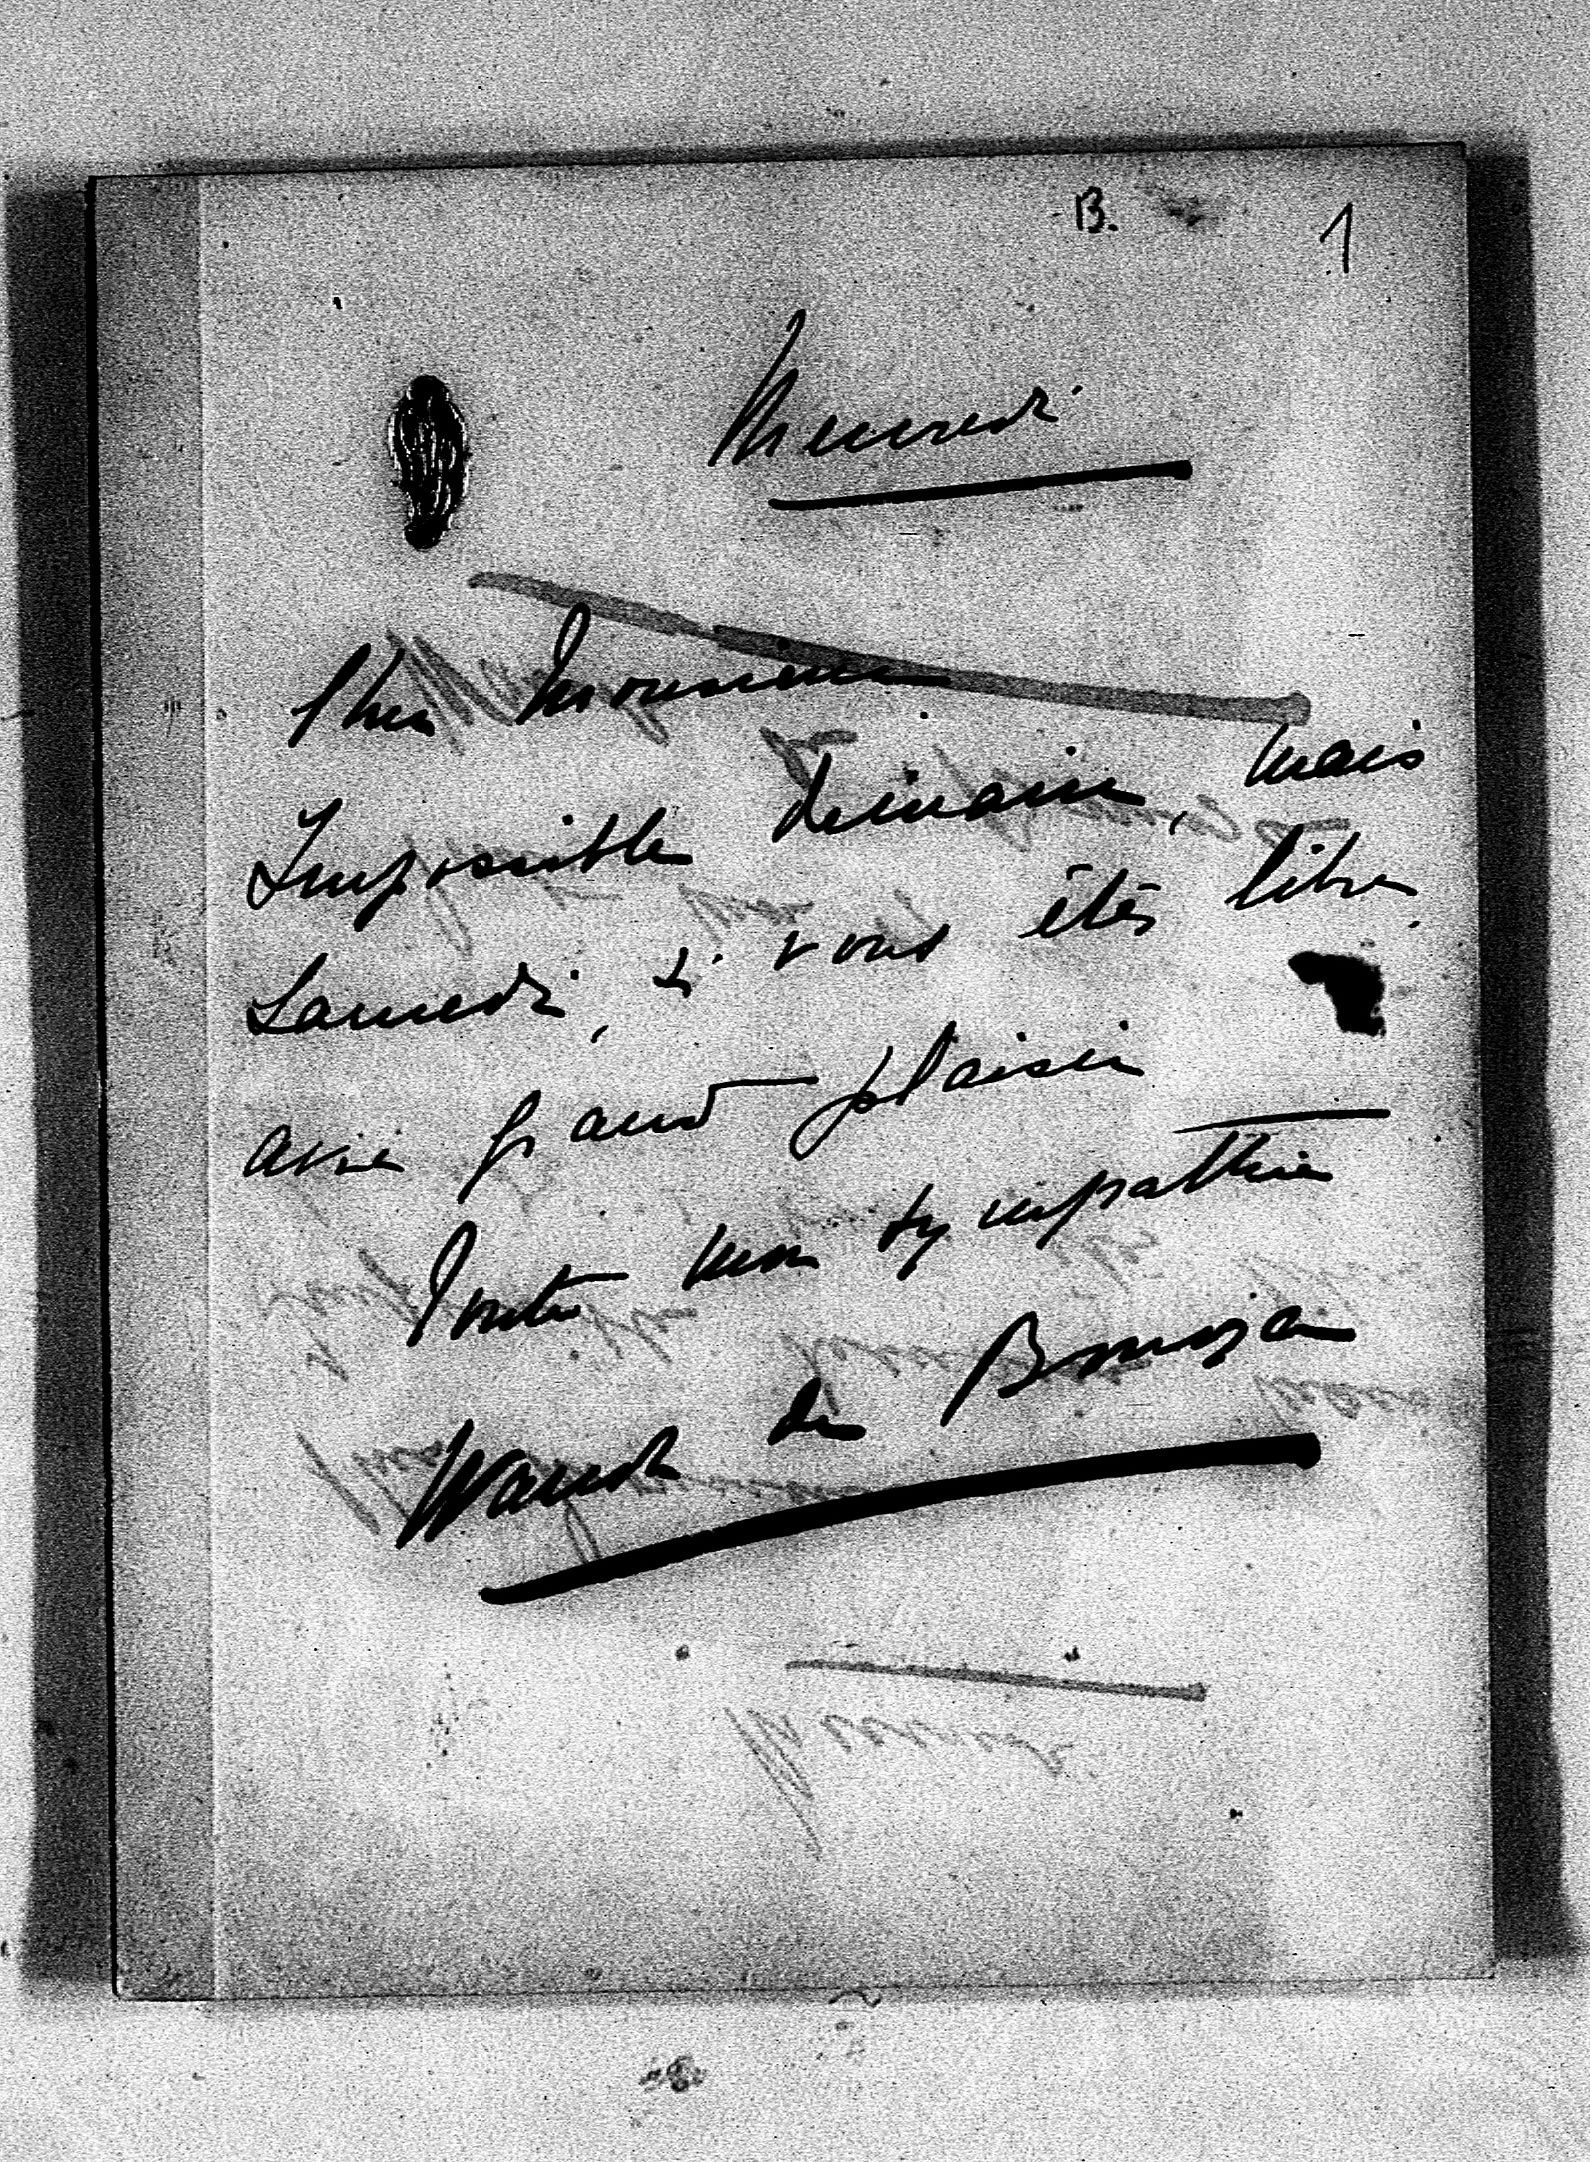 B. 1
Mercredi
Cher Monsieur
Impossible demain, mais
Samedi, si vous êtes libre
avec grand plaisir
Toute ma sympathie
de